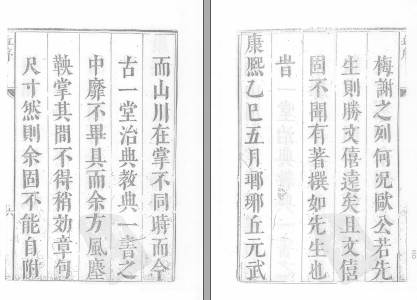 而山川在掌不同時而今
古一堂治典教典一書之
中靡不畢具而余方風塵
鞅掌其間不得稍効章句
尺寸然則余固不能自附
梅謝之列何況歐公若先
生則勝文僖遠矣且文僖
固不聞有著撰如先生也
旹
康熙乙巳五月瑯琊丘元武